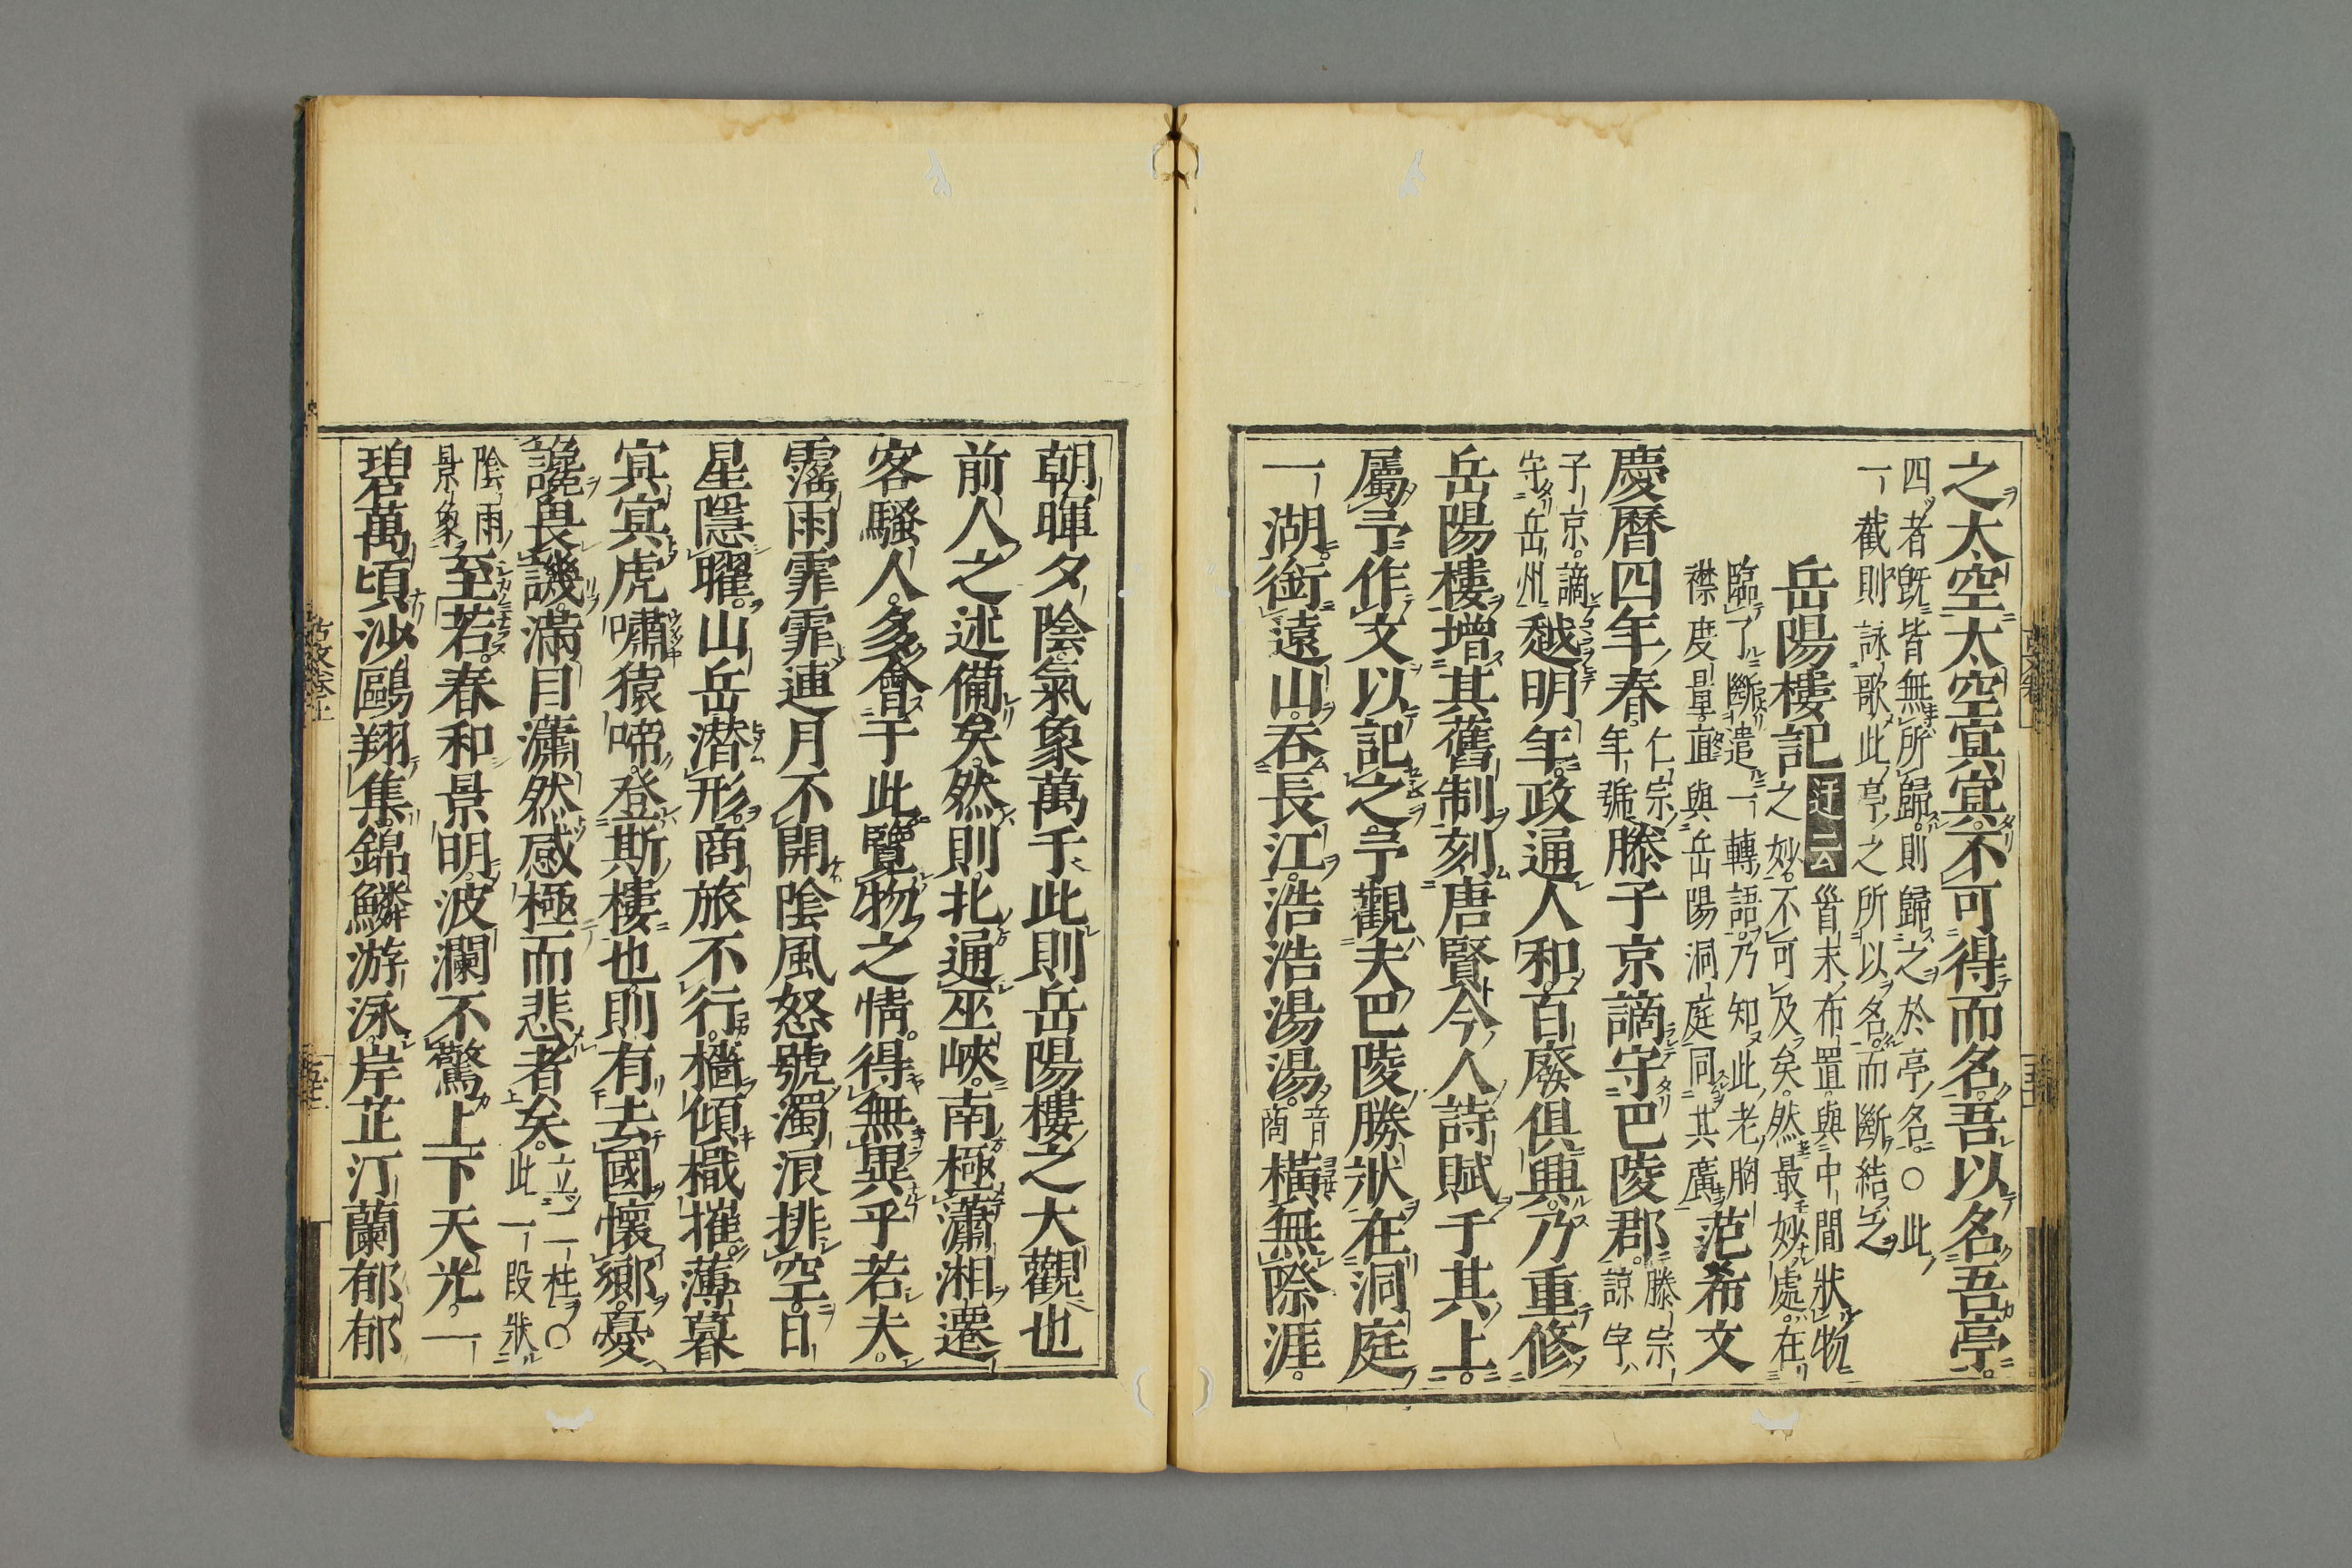 之太空太空冥冥不可得而名吾以名吾亭
四者既皆無所歸則歸之於亭名○此
一截則詠歌此亭之所以名而斷結之
岳陽樓記 迂云 首末布置與中間狀物
之妙不可及矣然最妙處在
臨了斷遣一轉語乃知此老胸
襟度量直與岳陽洞庭同其廣 范希文
慶曆四年春 仁宗年號 滕子京謫守巴陵郡 滕宗諒字
子京謫守岳州 越明年政通人和百廢俱興乃重修
岳陽樓增其舊制刻唐賢今人詩賦于其上
屬予作文以記之予觀夫巴陵勝狀在洞庭
一湖銜遠山吞長江浩浩湯湯 音商 橫無際涯
朝暉夕陰氣象萬千此則岳陽樓之大觀也
前人之述備矣然則北通巫峽南極瀟湘遷
客騷人多會于此覽物之情得無異乎若夫
霪雨霏霏連月不開陰風怒號濁浪排空日
星隱曜山岳潜形商旅不行檣傾檝摧薄暮
冥冥虎嘯猿啼登斯樓也則有去國懷鄉憂
讒畏譏滿目瀟然感極而悲者矣 立二柱○此一段狀
陰雨景象 至若春和景明波瀾不驚上下天光一
碧萬頃沙鷗翔集錦鱗游泳岸芷汀蘭郁郁